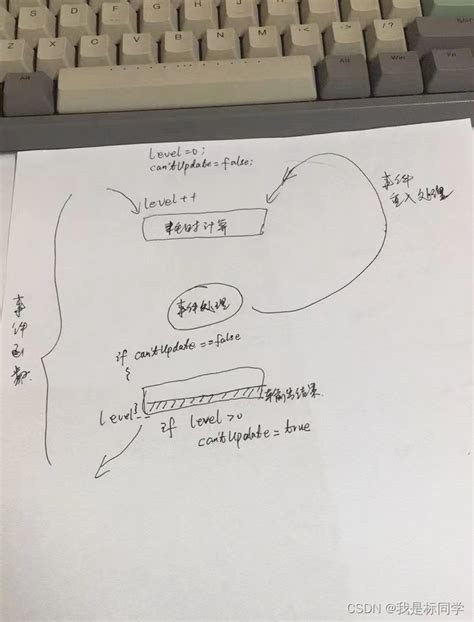 Z X C V B N M
Alt
Alt
Win
Fn
level=0;
can'tUpdate=false;
level++
耗时计算
事件
重入处理
事件处理
事件函数
if can'tUpdate==false
{
输出结果
level
if level>0
can'tUpdate=true
CSDN @我是标同学